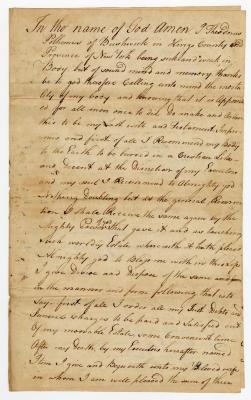 In the name of God Amen I Theodorus
Polhemus of Bushwick in Kings County and
Province of New York being sick and weak in
Body but of sound mind and memory thanks
be to god therefore Calling unto mind the morta
lity of my body and knowing that it is appoin
ted for all men once to die Do make and Ordain
this to be my Last will and testament Impri
mis and first of all I Recommend my body
to the Earth to be buried in a Christian Like
and Decent at the Discretion of my Executors
and my soul I Recommend to Almighty god
Nothing doubting but at the general Resurrec
tion I Shall Receive the same again by the
Mighty Power that gave it and as touching
Such worldly Estate wherewith it hath pleased
Almighty god to Bless me with in this life
I give Devise and Dispose of the same
in the manner and form following that is to
Say. first of all I order all my Just Debts
funeral Charges to be paid and Satisfied out
Of my moveable Estate some Convenient time
After my Death, by my Executors hereafter named
Item I give and bequeath unto my beloved
in whom I am well pleased the sum of three